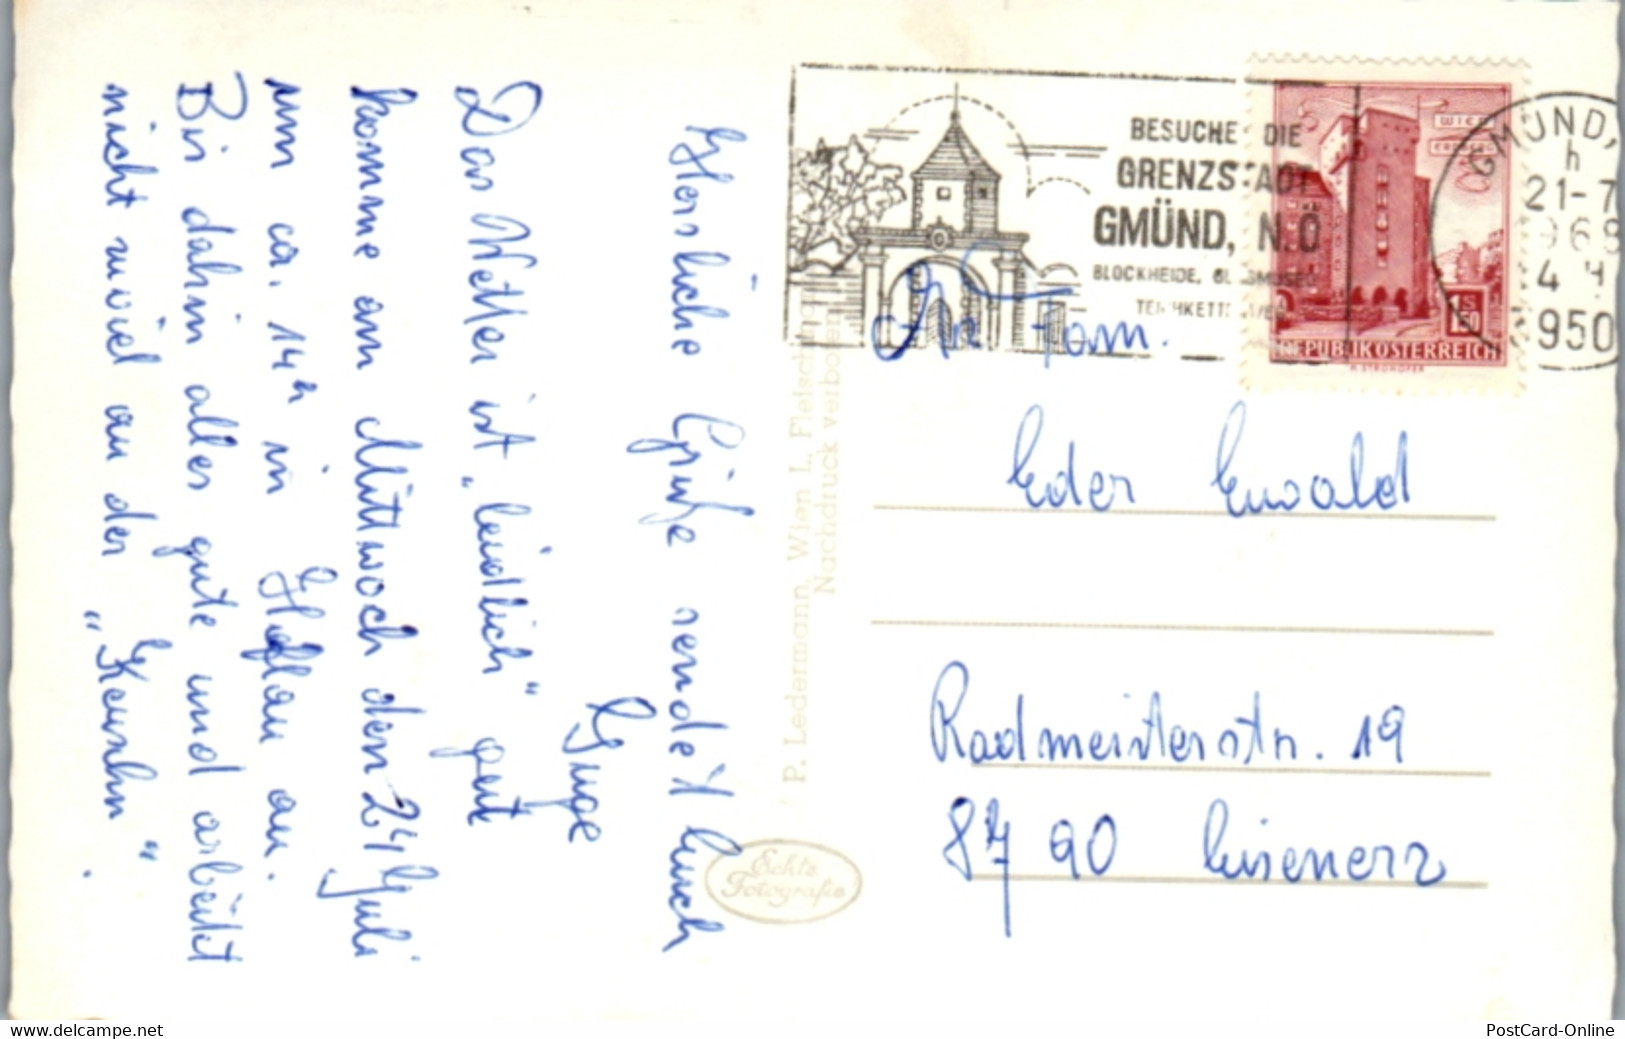 Herzliche Grüße sendet Euch
Guge
Das Wetter ist „leidlich“ geut
komme am Mittwoch den 24 Juli
um ca. 14h in Hoflau an.
Bis dahin alles gute und arbeitet
nicht zuviel an der
BESUCHE DIE
GRENZSTADT
GMÜND, N.Ö
BLOCKHEIDE, GLASMUSEUM
GMÜND,
h
21-7
4
3950
WIEN
S
1.50
REPUBLIK ÖSTERREICH
H. STROHOFER
An Fam.
Eder Ewald
Radmeisterstr. 19
8790 Eisenerz
P. Ledermann, Wien I., Fleischm
Nachdruck verboten
Echte
Fotografie
www.delcampe.net
PostCard-Online